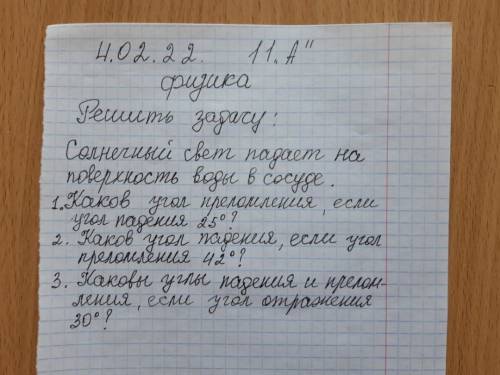 4.02.22. 11„А"
физика
Решить задачу:
Солнечный свет падает на
поверхность воды в сосуде.
1. Каков угол преломления, если
угол падения 25°?
2. Каков угол падения, если угол
преломления 42°?
3. Каковы углы падения и прелом-
ления, если угол отражения
30°?